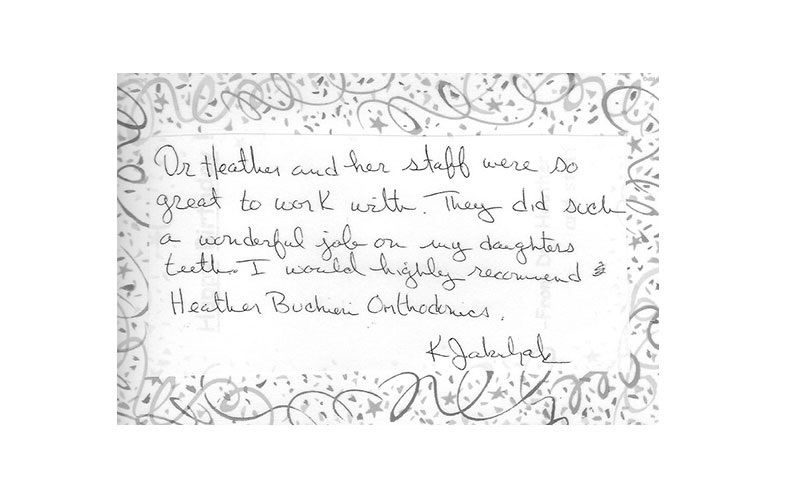 Dr Heather and her staff were so
great to work with. They did such
a wonderful job on my daughters
teeth. I would highly recommend
Heather Buchieri Orthodonics.
K